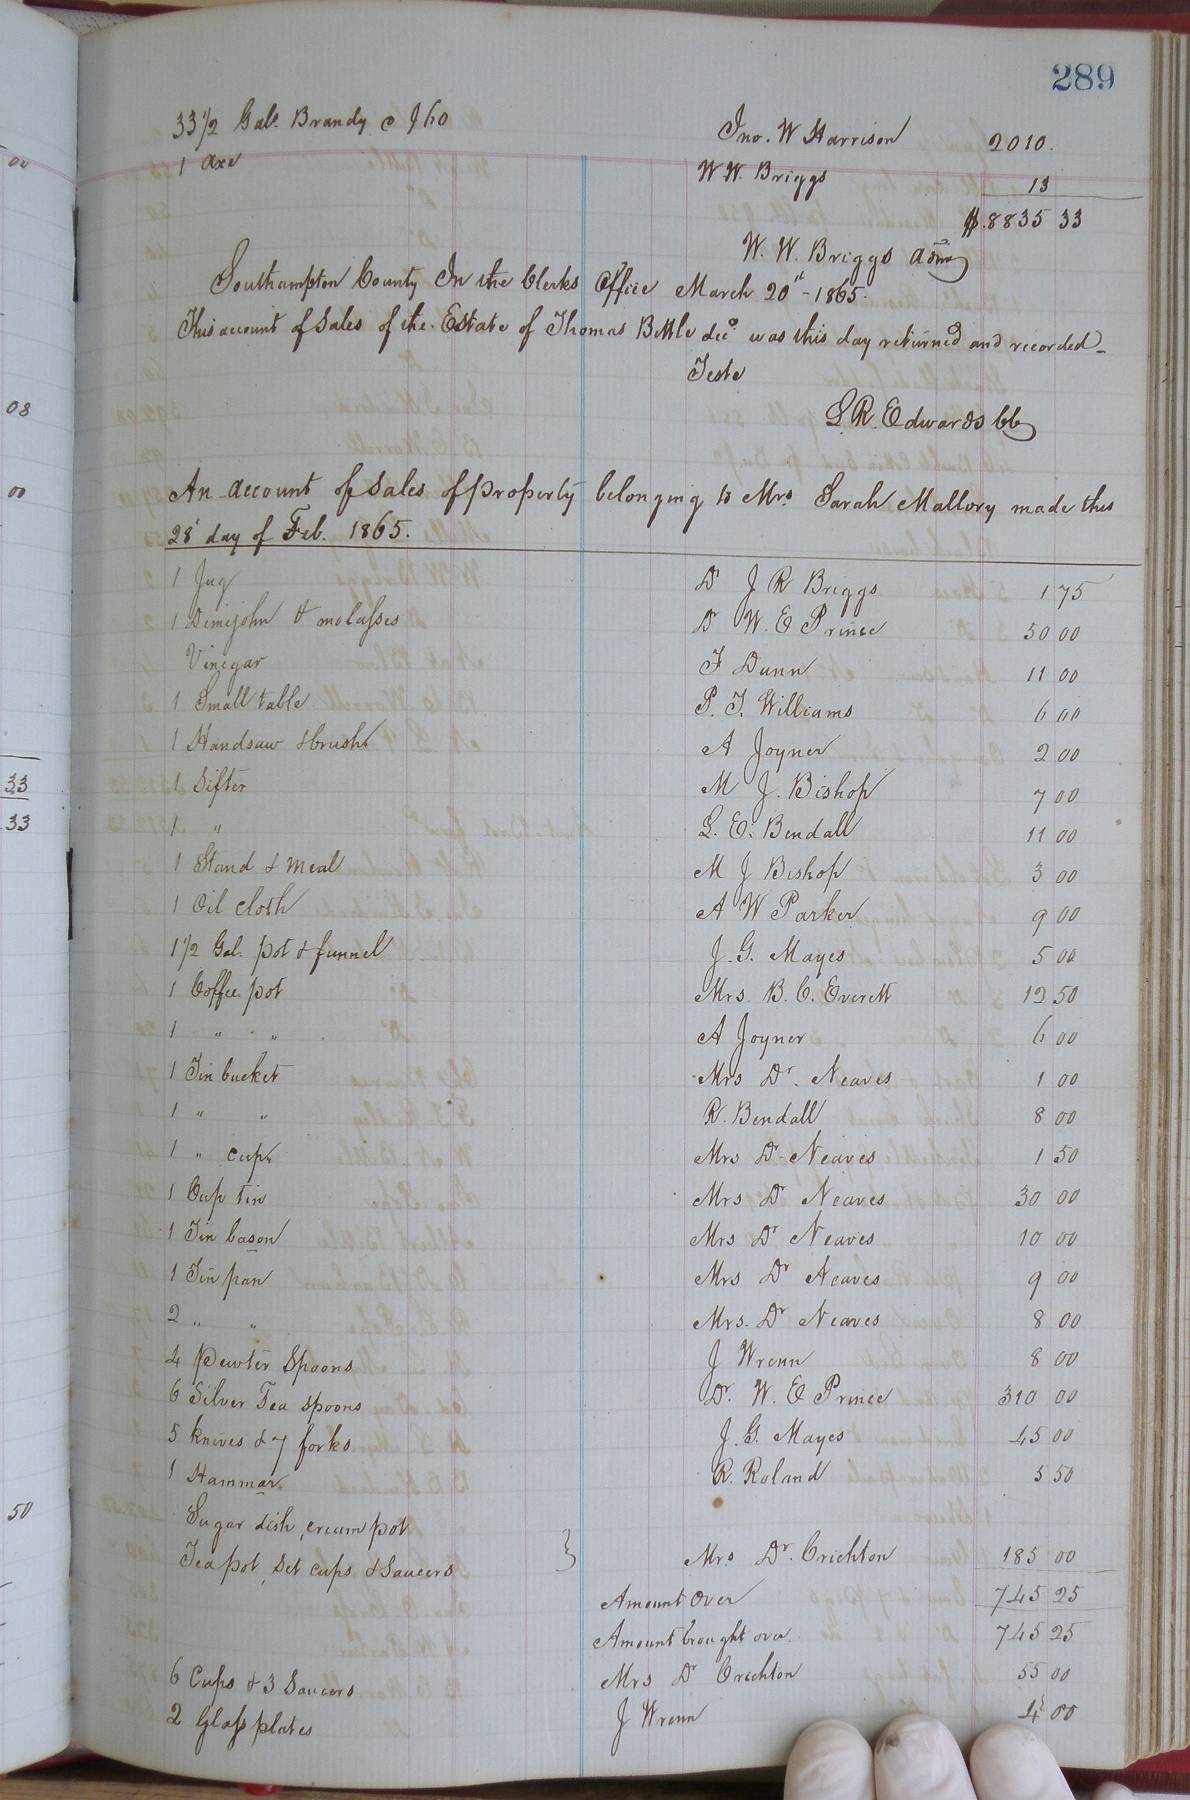 289
33 1/2 Gals. Brandy @ $60 Jno. W Harrison 2010.
1 axe W. W. Briggs 13
$8835 33
W. W. Briggs adm
Southampton County In the Clerks Office March 20th - 1865.
This account of Sales of the Estate of Thomas Bittle decd. was this day returned and recorded_
Teste
L R. Edwards CC
An account of Sales of property belonging to Mrs. Sarah Mallory made this
28' day of Feb. 1865.
1 Jug Dr J R Briggs 1 75
1 Demijohn & molasses Dr W. E Prince 50 00
Vinegar F Dunn 11 00
1 Small table P. T. Williams 6 00
1 Handsaw & brush A Joyner 2 00
1 Sifter M J. Bishop 7 00
1 " L. E. Bendall 11 00
1 Stand & meal M J Bishop 3 00
1 Oil cloth A W Parker 9 00
1 1/2 Gal. pot & funnel J. G. Mayes 5 00
1 Coffee pot Mrs. B. C. Everett 12 50
1 " " A Joyner 6 00
1 Tin bucket Mrs Dr. Neaves 1 00
1 " " R. Bendall 8 00
1 " cup Mrs Dr Neaves 1 50
1 Cup tin Mrs Dr Neaves 30 00
1 Tin bason Mrs Dr Neaves 10 00
1 Tin pan Mrs Dr Neaves 9 00
2 " " Mrs. Dr Neaves 8 00
4 Pewter Spoons J Wrenn 8 00
6 Silver Tea spoons Dr. W. E Prince 310 00
5 knives & 7 forks J. G. Mayes 45 00
1 Hammar. R. Roland 5 50
Sugar dish, cream pot
Tea pot, Set cups & Saucers } Mrs Dr. Crichton 185 00
Amount Over 745 25
Amount brought over. 745 25
6 Cups & 3 Saucers Mrs Dr Crichton 55 00
2 Glass plates J Wrenn 4 00
00
08
00
33
33
50